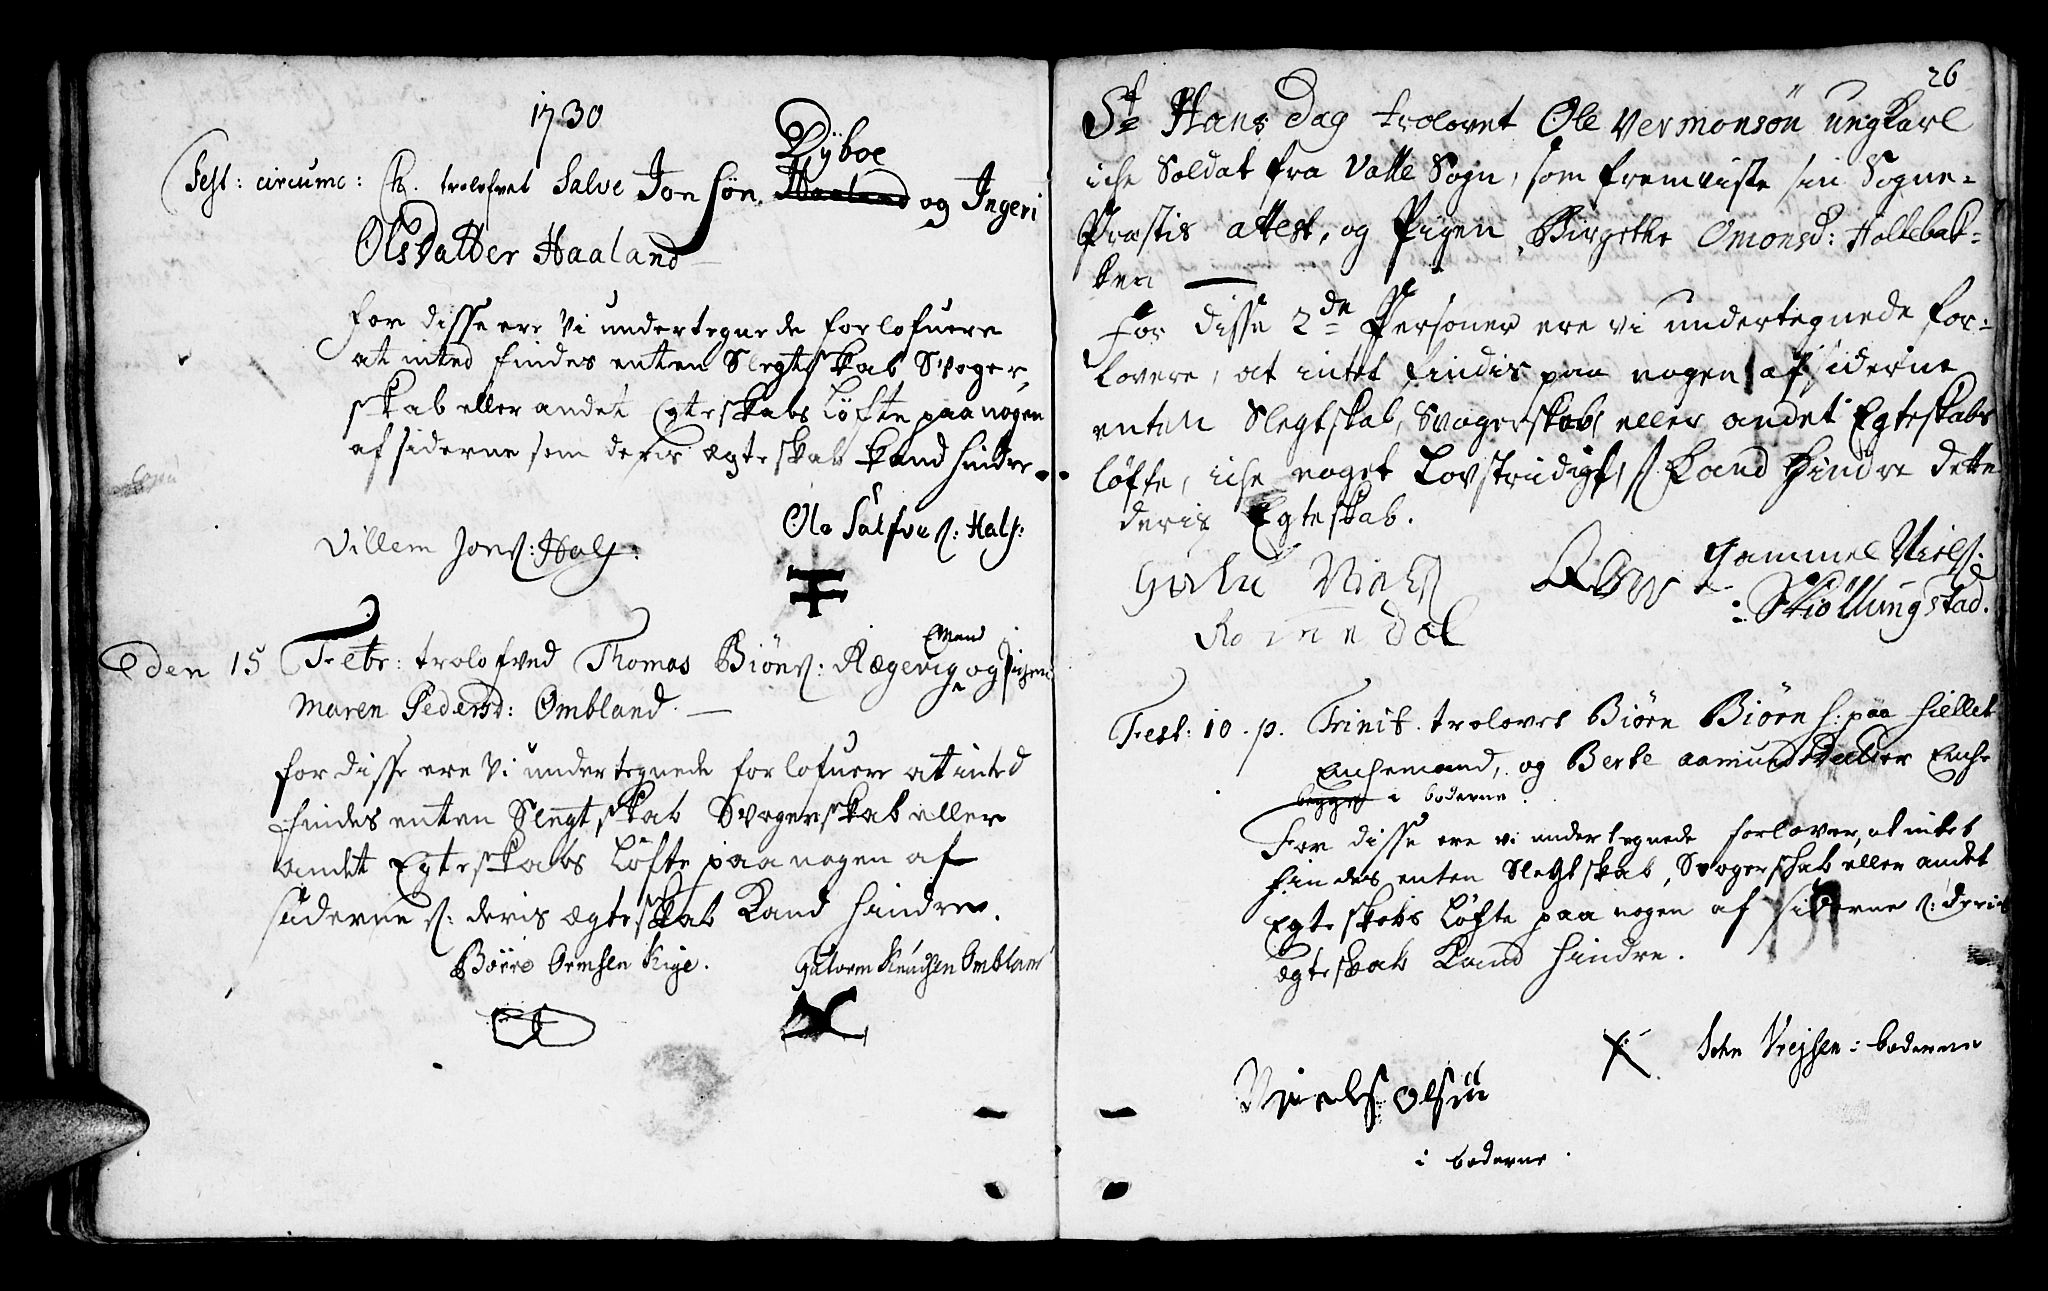 1730
Dÿboe
Fest: circumc: Ch. trolofvet Salve Jonsön Haaland og Ingeri
OlsDatter Haaland
for disse ere Vi undertegnede forlofuere
at inted findes enten Slegtskab Svoger
skab eller andet Egteskabs Løfte paa nogen
af siderne som deris ægteskab kand hindre
Villem Jons: Hals:
Ole Salfves: Hals:
den 15 Febr: trolofved Thomas Biöns: Rægevig og Pigen
Maren Pedersd: Ombland
for disse ere Vi undertegnede forlofuere at inted
findes enten Slegtskab Svogerskab eller
andet Egteskabs Løfte paa nogen af
siderne s: deris ægteskab kand hindre.
Börre Ormsen Kige.
Gutorm Knudsen Ombland
26
St Hans Dag trolovet Ole Vermonsön ungKarl
iche Soldat fra Valle Sogn, som fremviste sin Sogne-
Præstis attest, og Pigen Birgethe Omonsd: Holtebak-
ken
For disse 2de Personer ere vi undertegnede for-
lovere, at intet findis paa nogen af siderne
enten Slegtskab, Svogerskab eller andet Egteskabs
løfte, iche noget Lovstridigt, s kand Hindre dette
deris Egteskab.
Niels
Romedal
Gammel Niels:
Skiöllingstad.
Fest: 10. p. Trinit. trolovet Biørn Biørn s: paa Hiellet
Enchemand, og Berte aamundsdatter Enche
begge i boderne.
For disse ere vi undertegnede forlover, at intet
findes enten Slegtskab, Svogerschab eller andet
Egteskabs Løfte paa nogen af siderne s: deris
ægteskab kand hindre.
Niels olsön
i boderne.
boderne